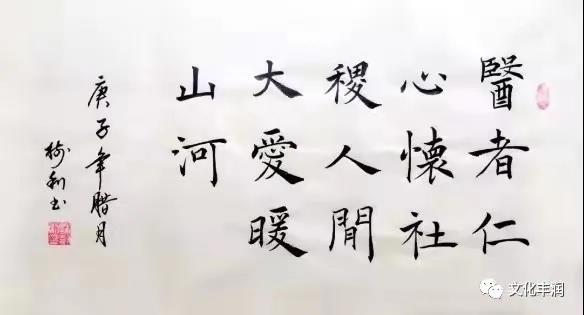 醫者仁
心懷社
稷人閒
大愛暖
山河
庚子年腊月
利书
文化丰润